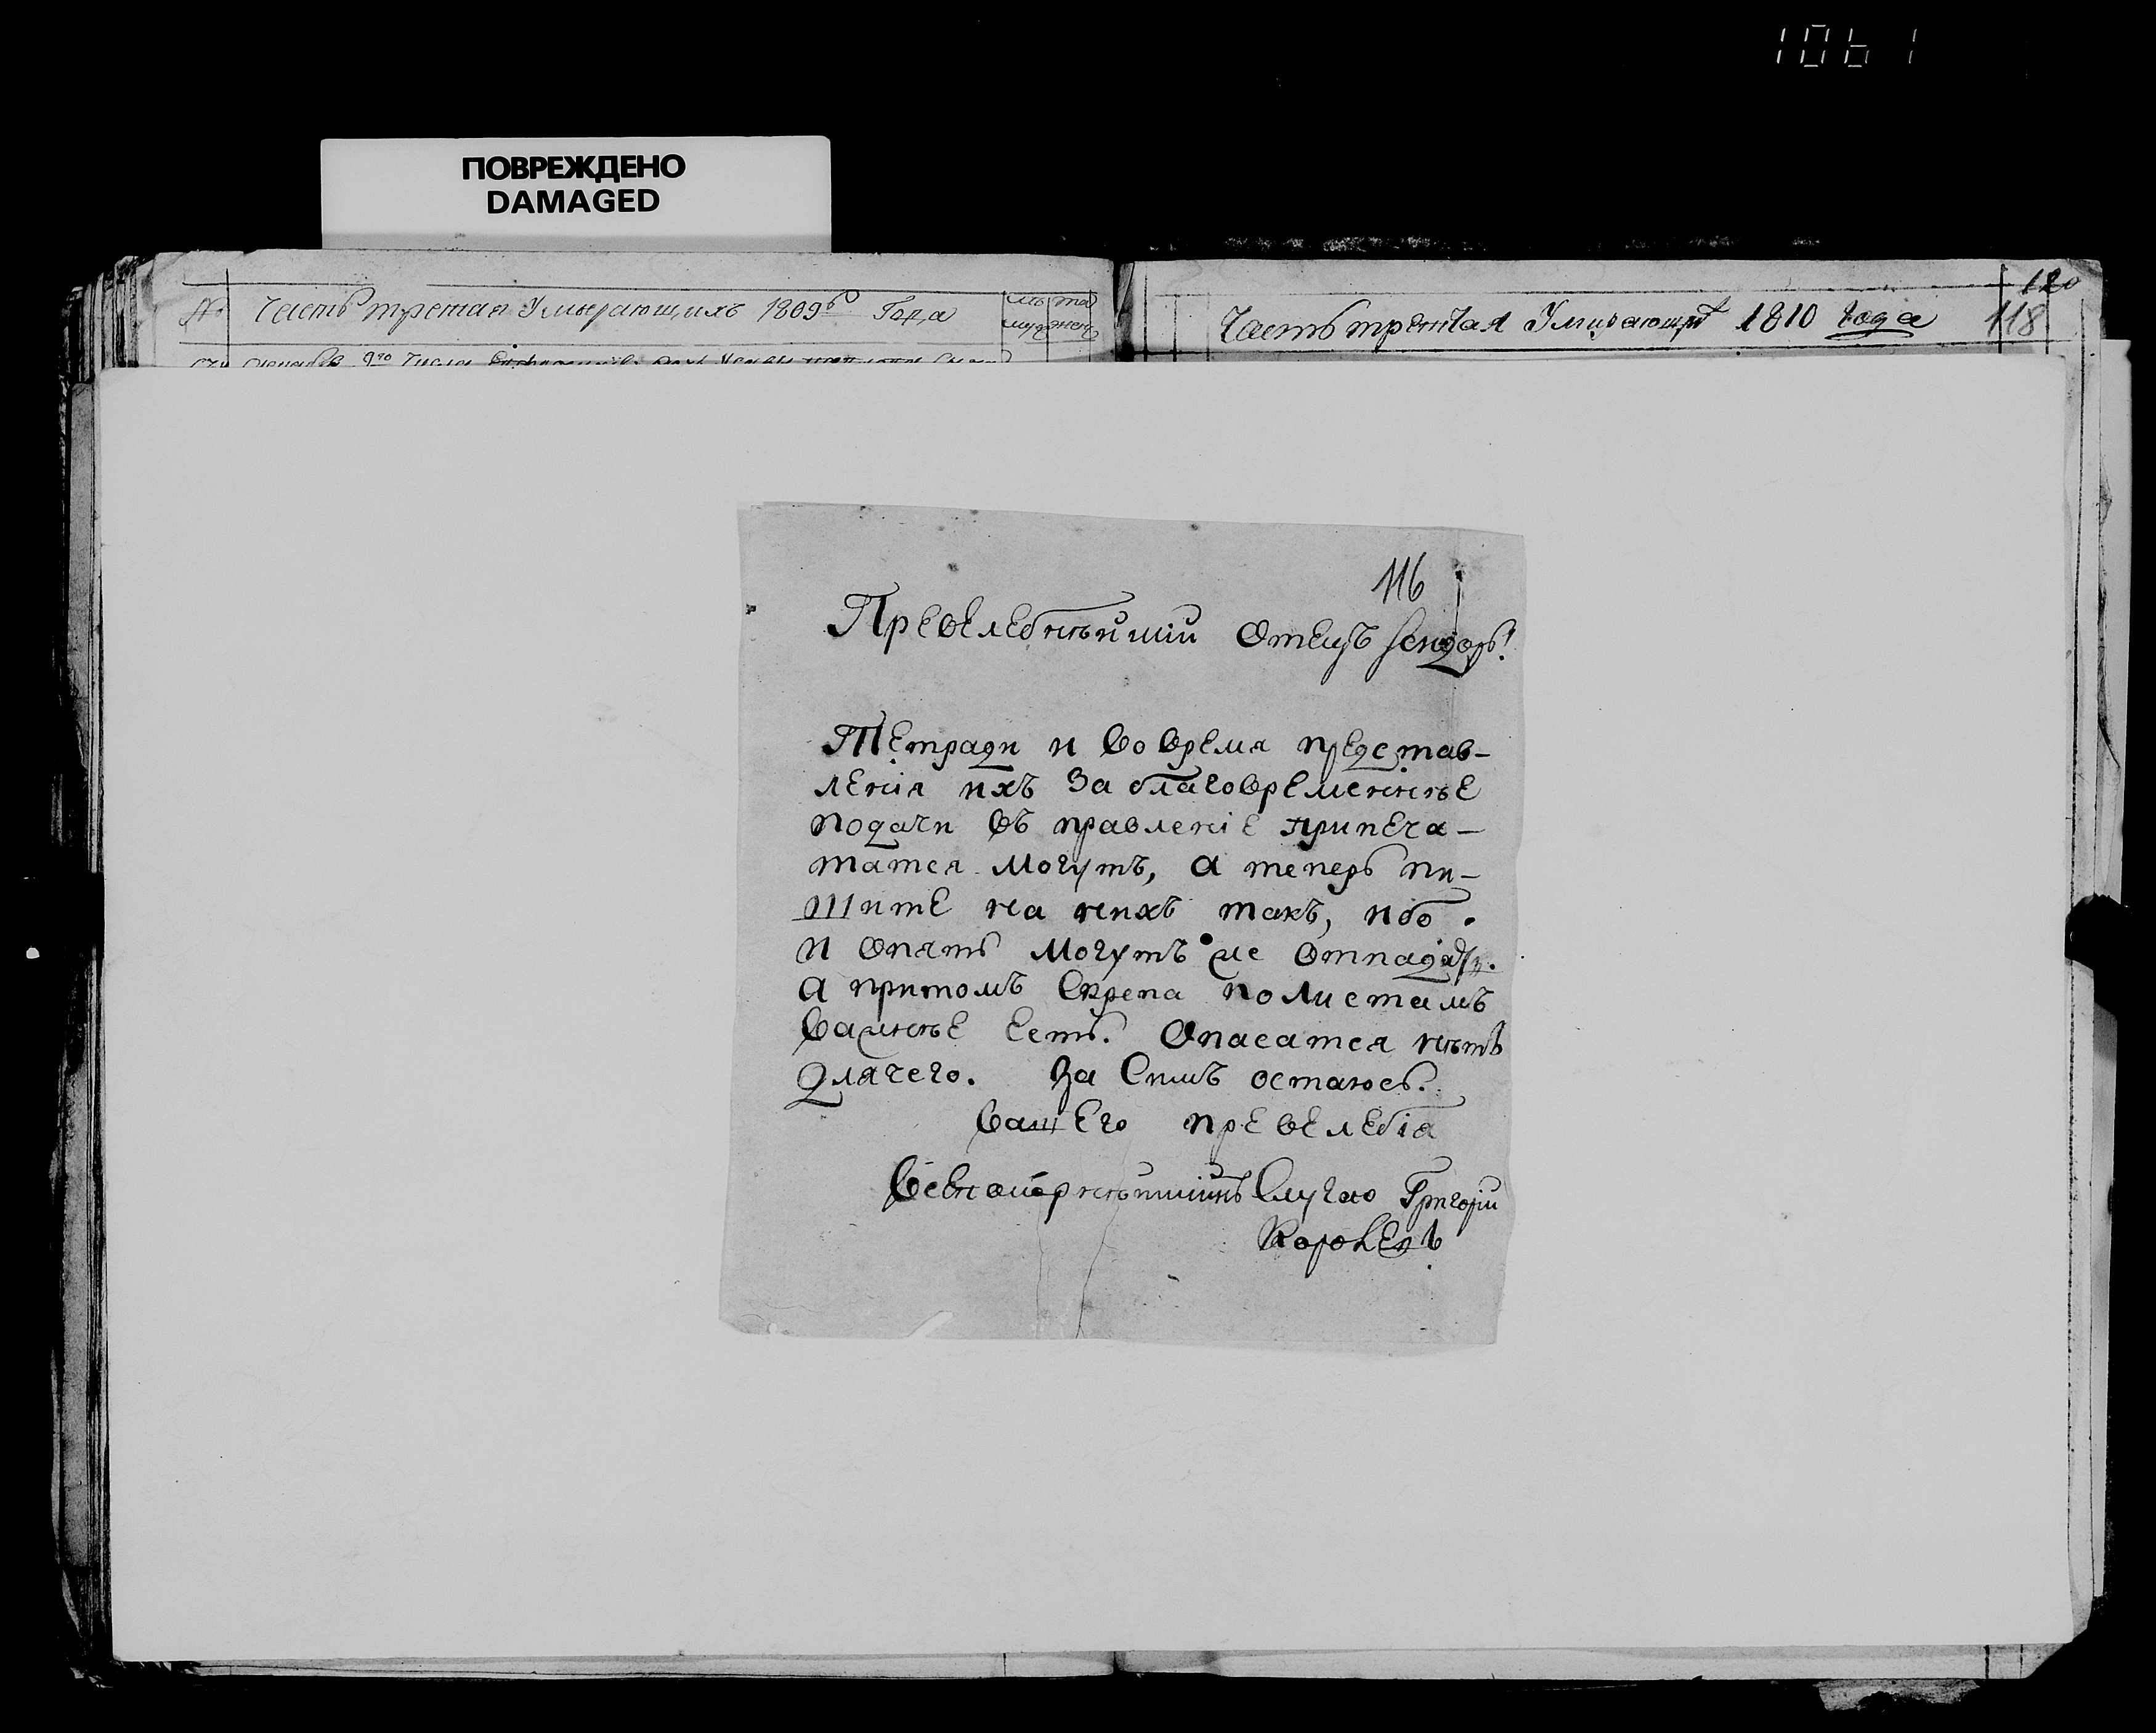 1061
ПОВРЕЖДЕНО
DAMAGED
№ Часть третая Умырающихъ 1809го Года
120
Часть третая Умирающихъ 1810 года 118
116
Превелебнѣйшій Отецъ
Тетради и во время представ-
ленія ихъ за благовременнѣе
подачи въ правленіе припеча-
татся могутъ, а теперь пи-
шите на нихъ такъ, ибо
и опять могутъ не отпадать.
а притомъ скрепа по листамъ
важнѣе есть. Опасатся нѣтъ
для чего. За симъ остаюсь.
вашего превелебія
слугою Григорій